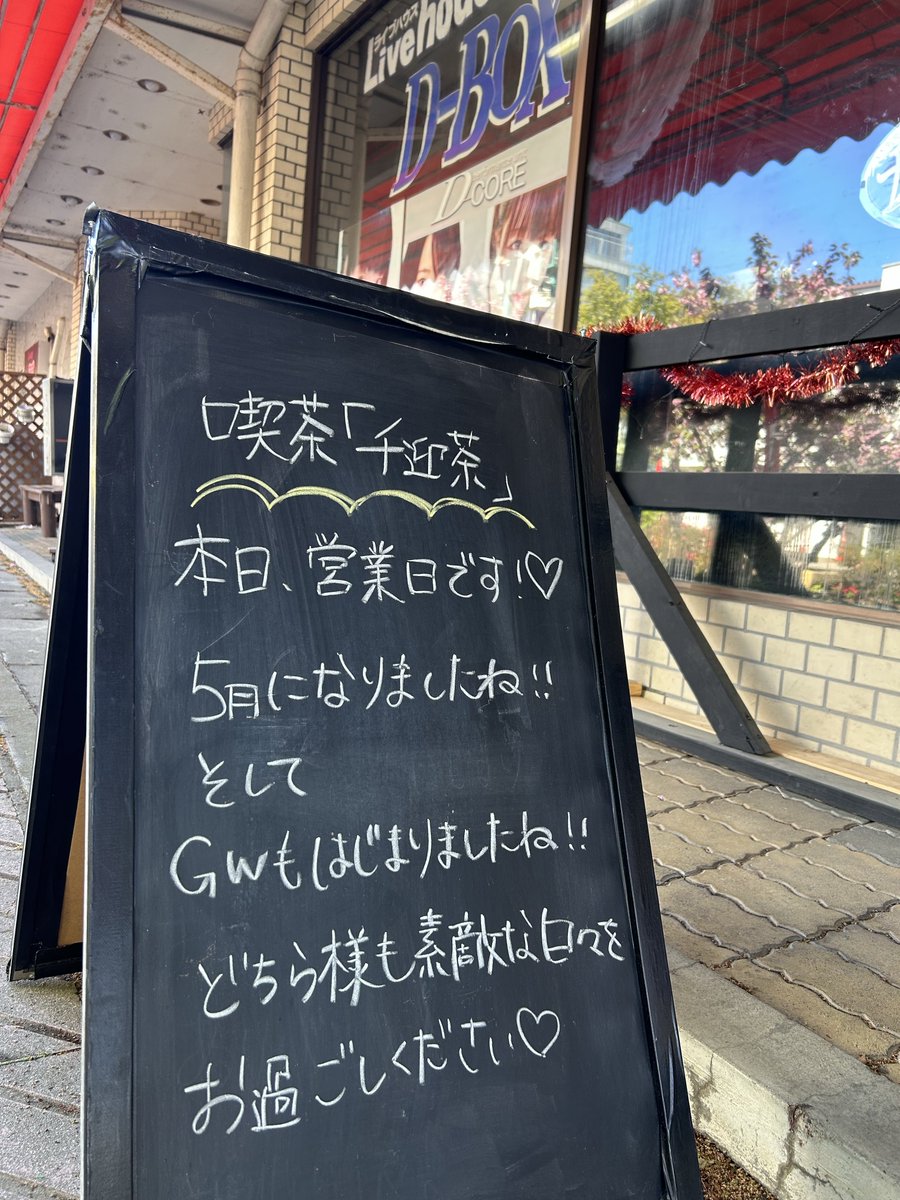 ライブハウス
Livehouse
D-BOX
D-CORE
喫茶「千迎茶」
本日、営業日です!♡
5月になりましたね!!
そして
GWもはじまりましたね!!
どちら様も素敵な日々を
お過ごしください♡